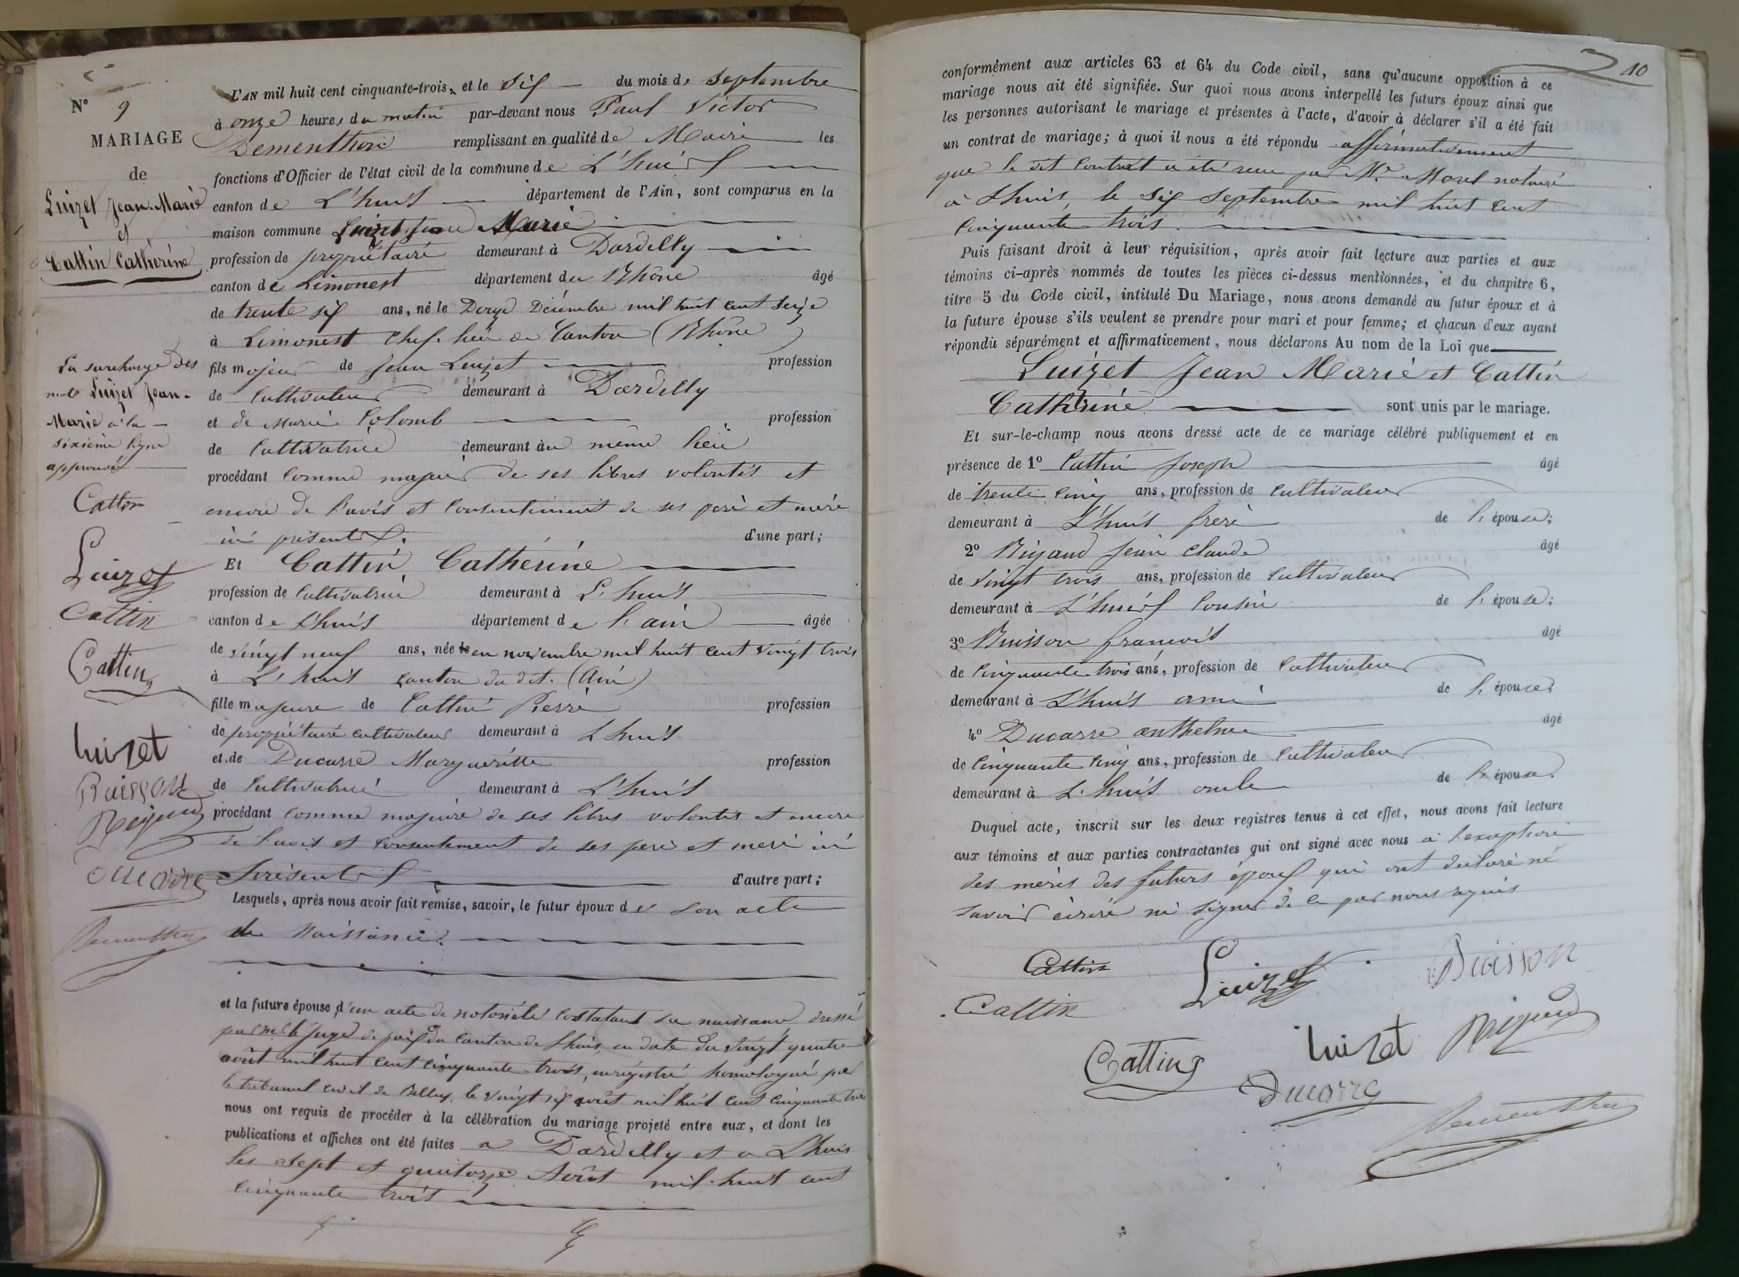 N° 9
MARIAGE
de
Luizet Jean-Marie
et
Cattin Catherine
La surcharge des
mots Luizet Jean-
Marie à la
sixième ligne
approuvée
Cattin
Luizet
Cattin
Cattin
Luizet
Buisson
Rigaud
Ducarre
Dementhon
L'AN mil huit cent cinquante-trois, et le Six du mois de Septembre
à onze heures du matin par-devant nous Paul Victor
Dementhon remplissant en qualité de Maire les
fonctions d'Officier de l'état civil de la commune de L'huis
canton de L'huis département de l'Ain, sont comparus en la
maison commune Luizet Jean Marie
profession de propriétaire demeurant à Dardilly
canton de Limonest département du Rhône âgé
de trente six ans, né le Douze Décembre mil huit cent seize
à Limonest chef-lieu de Canton (Rhône)
fils majeur de Jean Luizet profession
de Cultivateur demeurant à Dardilly
et de Marie Colomb profession
de Cultivatrice demeurant au même lieu
procédant comme majeur de ses libres volontés et
encore de l'avis et consentement de ses père et mère
ici présents. d'une part;
Et Cattin Catherine
profession de Cultivatrice demeurant à L'huis
canton de L'huis département de l'ain âgée
de vingt neuf ans, née en novembre mil huit cent vingt trois
à L'huis canton du dit. (Ain)
fille majeure de Cattin Pierre profession
de propriétaire cultivateur demeurant à L'huis
et de Ducarre Marguerite profession
de Cultivatrice demeurant à L'huis
procédant comme majeure de ses libres volontés et encore
de l'avis et consentement de ses père et mère ici
présents d'autre part;
Lesquels, après nous avoir fait remise, savoir, le futur époux de son acte
de Naissance.
et la future épouse d'un acte de notoriété constatant sa naissance dressé
par Mr le Juge de paix du canton de Lhuis, en date du vingt quatre
août mil huit cent cinquante trois, enregistré homologué par
le tribunal civil de Belley, le vingt six août mil huit cent cinquante trois
nous ont requis de procéder à la célébration du mariage projeté entre eux, et dont les
publications et affiches ont été faites a Dardilly et a Lhuis
les sept et quatorze Août mil huit cent
cinquante trois
10
conformément aux articles 63 et 64 du Code civil, sans qu'aucune opposition à ce
mariage nous ait été signifiée. Sur quoi nous avons interpellé les futurs époux ainsi que
les personnes autorisant le mariage et présentes à l'acte, d'avoir à déclarer s'il a été fait
un contrat de mariage; à quoi il nous a été répondu affirmativement
que le dit Contrat a été reçu par Me Morel notaire
à Lhuis, le six septembre mil huit cent
cinquante trois.
Puis faisant droit à leur réquisition, après avoir fait lecture aux parties et aux
témoins ci-après nommés de toutes les pièces ci-dessus mentionnées, et du chapitre 6,
titre 5 du Code civil, intitulé Du Mariage, nous avons demandé au futur époux et à
la future épouse s'ils veulent se prendre pour mari et pour femme; et chacun d'eux ayant
répondu séparément et affirmativement, nous déclarons Au nom de la Loi que
Luizet Jean Marie et Cattin
Catherine sont unis par le mariage.
Et sur-le-champ nous avons dressé acte de ce mariage célébré publiquement et en
présence de 1° Cattin Joseph âgé
de trente cinq ans, profession de Cultivateur
demeurant à L'huis frère de l'épouse;
2° Rigaud Jean Claude âgé
de vingt trois ans, profession de Cultivateur
demeurant à L'huis Cousin de l'épouse;
3° Buisson francois âgé
de Cinquante trois ans, profession de Cultivateur
demeurant à L'huis ami de l'épouse
4° Ducarre anthelme âgé
de Cinquante Cinq ans, profession de Cultivateur
demeurant à L'huis oncle de l'épouse
Duquel acte, inscrit sur les deux registres tenus à cet effet, nous avons fait lecture
aux témoins et aux parties contractantes qui ont signé avec nous à l'exception
des mères des futurs époux qui ont déclaré ne
savoir écrire ni signer de ce par nous requis
Cattin Luizet Buisson
Cattin
Cattin Luizet Rigaud
Ducarre
Dementhon